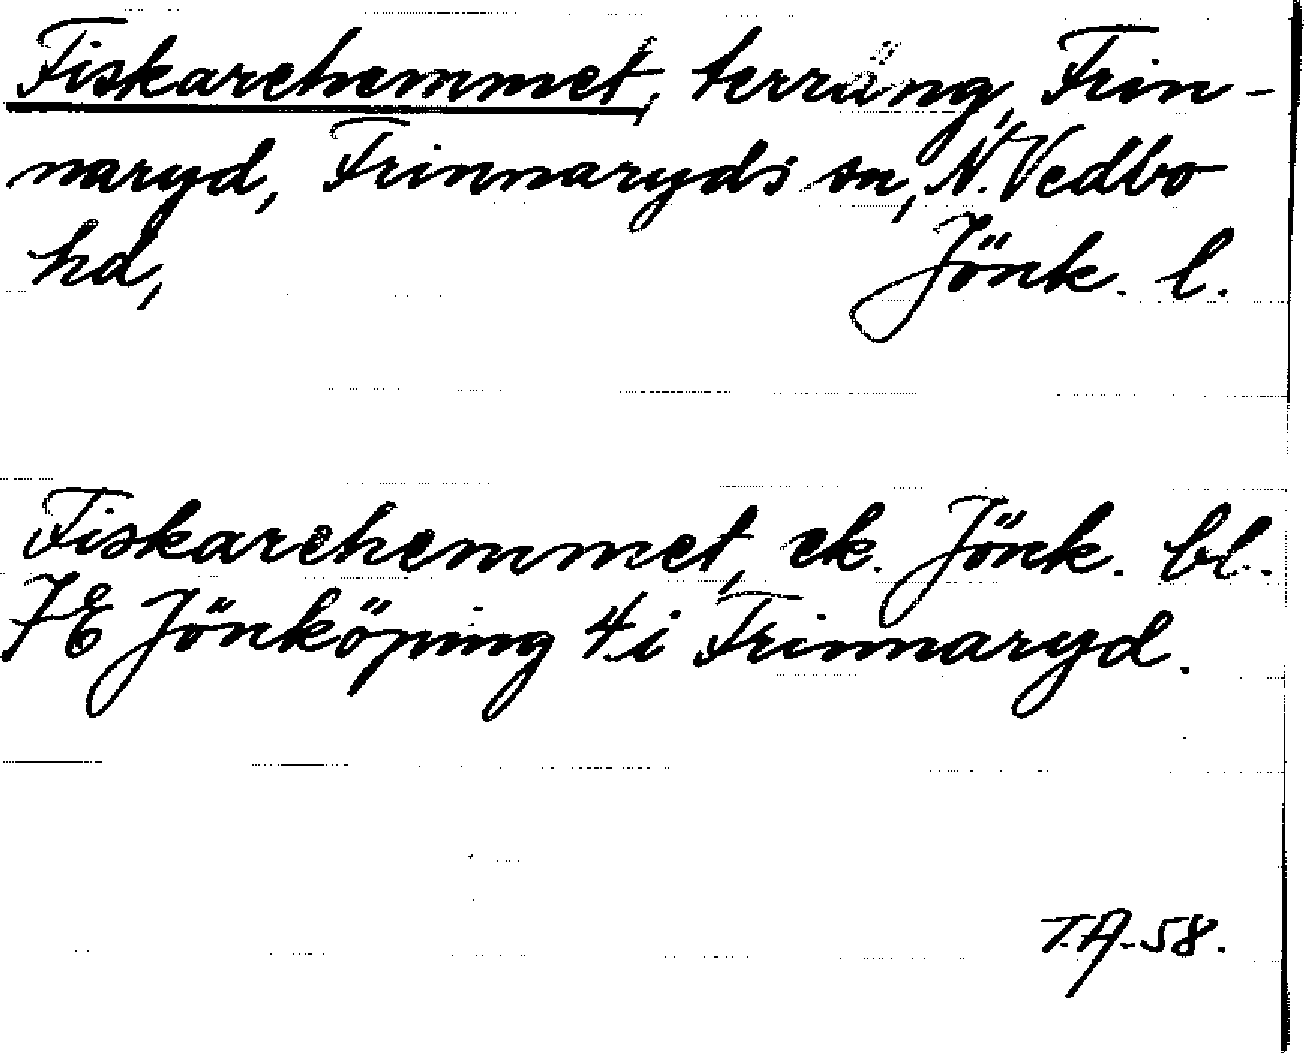 Fiskarehemmet, terräng, Frin-
naryd, Frinnaryds sn, N. Vedbo
hd, Jönk. l.
Fiskarehemmet, ek. Jönk. bl.
7E Jönköping 4i Frinnaryd.
T.A-58.